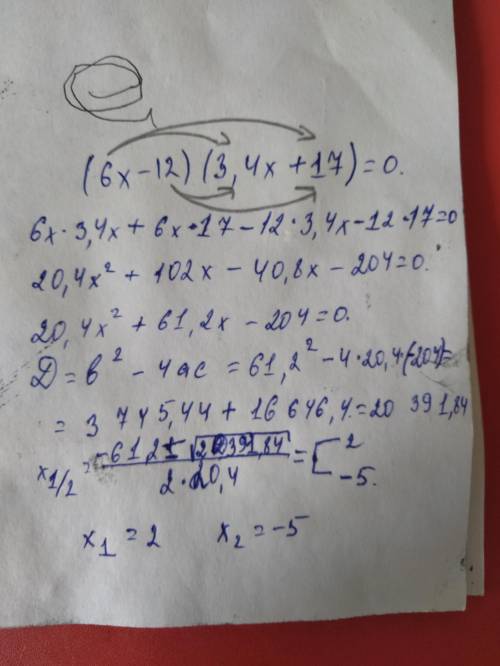 (6x-12)(3,4x+17)=0.
6x·3,4x+6x·17-12·3,4x-12·17=0
20,4x²+102x-40,8x-204=0.
20,4x²+61,2x-204=0.
D=b²-4ac=61,2²-4·20,4·(-204)=
=3 745,44+16 646,4=20 391,84
x1/2=(-61,2±√20391,84)/(2·20,4)=[2 -5.
x₁=2 x₂=-5